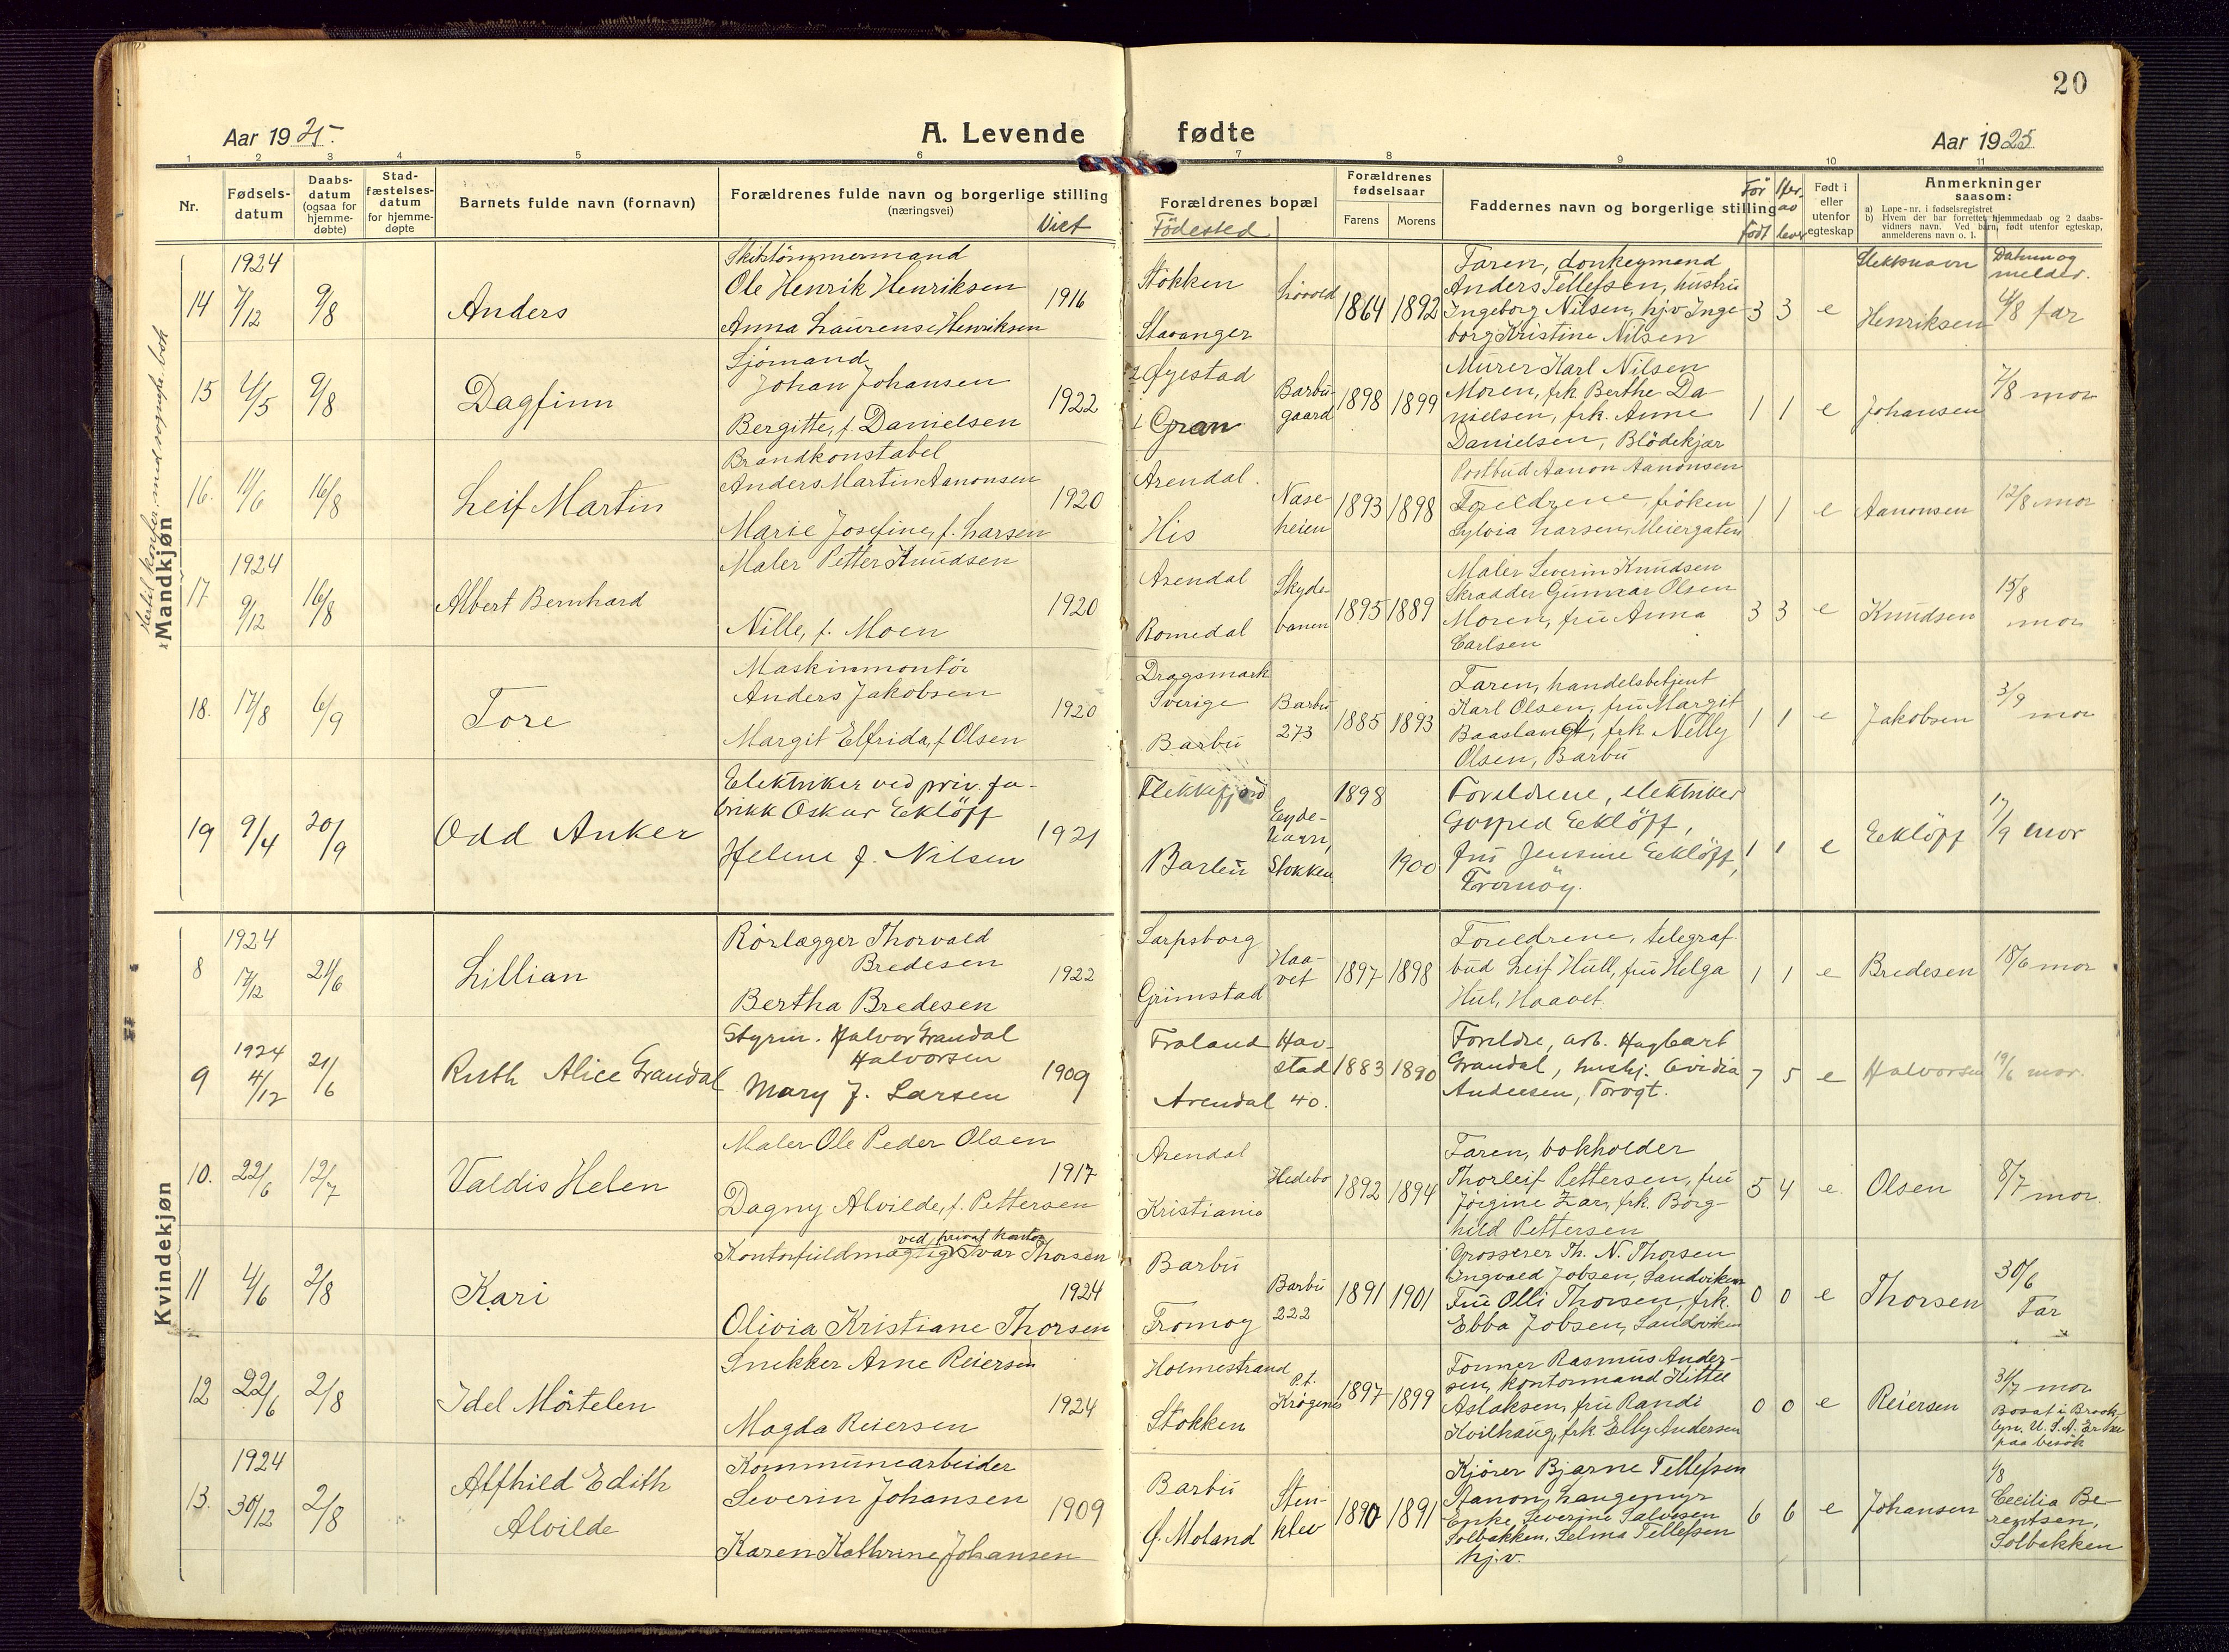 20
Aar 1925.
A. Levende
fødte
Aar 1925
1 2 3 4 5 6 7 8 9 10 11
Nr.
Fødsels-
datum
Daabs-
datum
(ogsaa for
hjemme-
døbte)
Stad-
fæstelses-
datum
for hjemme-
døpte
Barnets fulde navn (fornavn)
Forældrenes fulde navn og borgerlige stilling
(næringsvei)
Viet
Forældrenes bopæl
Födested
Forældrenes
fødselsaar
Farens
Morens
Faddernes navn og borgerlige stilling
För
født
av
lever
Født i
eller
utenfor
egteskap
Anmerkninger
saasom:
a) Løpe-nr. i fødselsregistret
b) Hvem der bar forrettet hjemmedaab og 2 daabs-
vidners navn. Ved barn, født utenfor egteskap,
anmelderens navn o. l.
Slektsnavn
Datum og
melder.
Mandkjøn
14
1924
7/12
9/8
Anders
Skibtömmermand
Ole Henrik Henriksen
Anna Laurense Henriksen
1916
Stokken
Stavanger
1864
1892
Faren, donkeymand
Anders Tellefsen, hustru
Ingeborg Nilsen, hjv Inge-
borg Kristine Nilsen
3 3
e
Henriksen
4/8 far
15
4/5
9/8
Dagfinn
Sjömand
Johan Johansen
Bergitte, f. Danielsen
1922
2 Øyestad
1 Gran
Barbu-
gaard
1898
1899
Murer Karl Nilsen
Moren, frk Berthe Da-
nielsen, frk. Anne
Danielsen, Blödekjær
1 1
e
Johansen
7/8 mor
16.
11/6
16/8
Leif Martin
Brandkonstabel
Anders Martin Aanonsen
Marie Josefine, f. Larsen
1920
Arendal.
His
Nase-
heien
1893
1898
Postbud Aanon Aanonsen
Foreldrene, fröken
Sylvia Larsen, Meiergaten
1 1
e
Aanonsen
12/8 mor
17
1924
9/12
16/8
Albert Bernhard
Maler Petter Knudsen
Nille, f. Moen
1920
Arendal
Romedal
Skyde-
banen
1895
1889
Maler Severin Knudsen
Skrædder Gunnar Olsen
Moren, fru Anna
Carlsen
3 3
e
Knudsen
15/8
mor
18.
17/8
6/9
Tore
Maskinmontör
Anders Jakobsen
Margit Elfrida, f Olsen
1920
Dragsmark
Sverige
Barbu
Barbu
273
1885
1893
Faren, handelsbetjent
Karl Olsen, fru Margit
Baasland, frk Nelly
Olsen, Barbu
1 1
e
Jakobsen
3/9
mor
19
9/4
20/9
Odd Anker
Elektriker ved priv. fa-
brikk Oskar Eeklöff
Helene f. Nilsen
1921
Flekkefjord
Barbu
Eyde-
havn,
Stokken
1898
1900
Foreldrene, elektriker
Eeklöff,
fru Jensine Eeklöff,
Tromöy.
1 1
e
Eeklöff
17/9 mor
Kvindekjøn
8
1924
17/12
21/6
Lillian
Rörlægger Thorvald
Bredesen
Bertha Bredesen
1922
Sarpsborg
Grimstad
Haa-
vet
1897
1898
Foreldrene, telegraf-
bud Leif Hull, fru Helga
Hul, Haavet.
1 1
e
Bredesen
18/6 mor
9
1924
4/12
21/6
Ruth Alice Grandal
Styrm. Halvor Grandal
Halvorsen
Mary f. Larsen
1909
Froland
Arendal
Hav-
stad
40.
1883
1890
Foreldre, arb. Hagbart
Grandal, hushj. Ovidia
Andersen, Torvgt.
7 5
e
Halvorsen
19/6 mor.
10.
22/6
12/7
Valdis Helen
Maler Ole Peder Olsen
Dagny Alvilde, f. Pettersen
1917
Arendal
Kristiania
Hedebo
1892
1894
Faren, bokholder
Thorleif Pettersen, fru
Jörgine Zar, frk. Borg-
hild Pettersen
5 4
e.
Olsen
8/7
mor.
11
4/6
2/8
Kari
ved privat kontor
Kontorfuldmægtig Ivar Thorsen
Olivia Kristiane Thorsen
1924
Barbu
Tromøy
Barbu
222
1891
1901
Grosserer Th. N. Thorsen
Ingvald Jobsen, Sandviken
Fru Olli Thorsen, frk.
Ebba Jobsen, Sandviken
0 0
e
Thorsen
30/6
Far
12
22/6
2/8
Idel Mörtelen
Snekker Arne Reiersen
Magda Reiersen
1924
Holmestrand
Stokken
p.t.
Krøgenes
1897
1899
Former Rasmus Ander-
sen, kontormand Kittel
Aslaksen, fru Randi
Hvilhaug, frk Elly Andersen
0 0
e
Reiersen
31/7 mor
Bosat i Brook-
lyn. U.S.A. Er her
paa besök
13.
1924
30/12
2/8
Alfhild Edith
Alvilde
Kommunearbeider
Severin Johansen
Karen Kathrine Johansen
1909
Barbu
Ø. Moland
Sten-
klev
1890
1891
Kjörer Bjarne Tellefsen
Aanon Langemyr
Enke Severine Salvesen
Solbakken, Selma Tellefsen
hj.v.
6 6
e
Johansen
1/8
Cecilia Be-
rentsen,
Solbakken